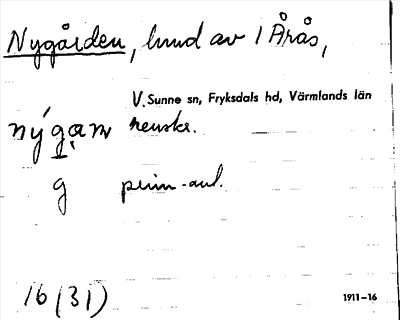 Nygården, hmd av 1 Årås,
V. Sunne sn, Fryksdals hd, Värmlands län
nýgaṇ
g
16 (31)
1911–16